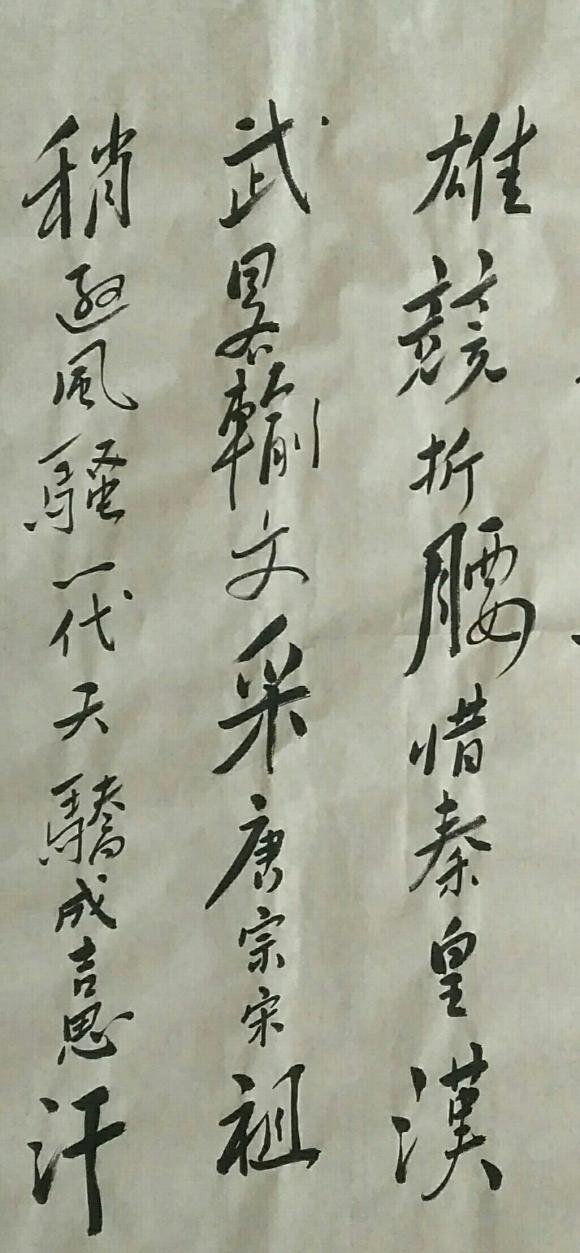 雄競折腰惜秦皇漢
武畧輸文采唐宗宋祖
稍遜風騷一代天驕成吉思汗